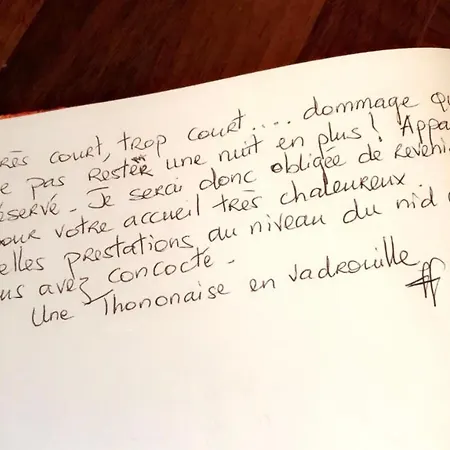 RÈS COURT, TROP COURT.... dommage qu
e pas RESTER une nuit en plus! Appa
éservé. Je serai donc obligée de reveni
our votre accueil très chaleureux.
elles prestations au niveau du nid
us avez concocté.
Une Thononaise en vadrouille